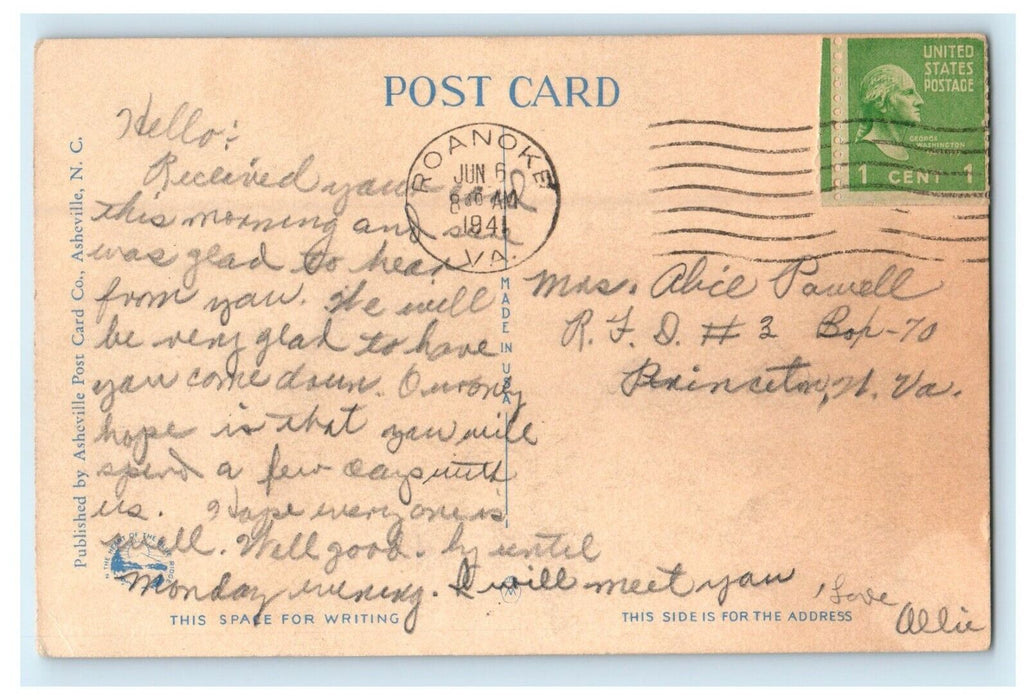 POST CARD
UNITED
STATES
POSTAGE
GEORGE
WASHINGTON
1 CENT 1
ROANOKE
JUN 6
8 AM
1941
VA.
Hello:
Received your
this morning and
was glad to hear
from you. We will
be very glad to have
you come down. Our only
hope is that you will
spend a few days with
us. Hope everyone is
well. Well good-by until
Monday evening. I will meet you
, Love
Allie
Mrs. Alice Powell
R. F. D. # 3 Box-70
Princeton, W. Va.
MADE IN USA
Published by Asheville Post Card Co., Asheville, N. C.
IN THE HEART OF THE BLUE RIDGE
THIS SPACE FOR WRITING
THIS SIDE IS FOR THE ADDRESS